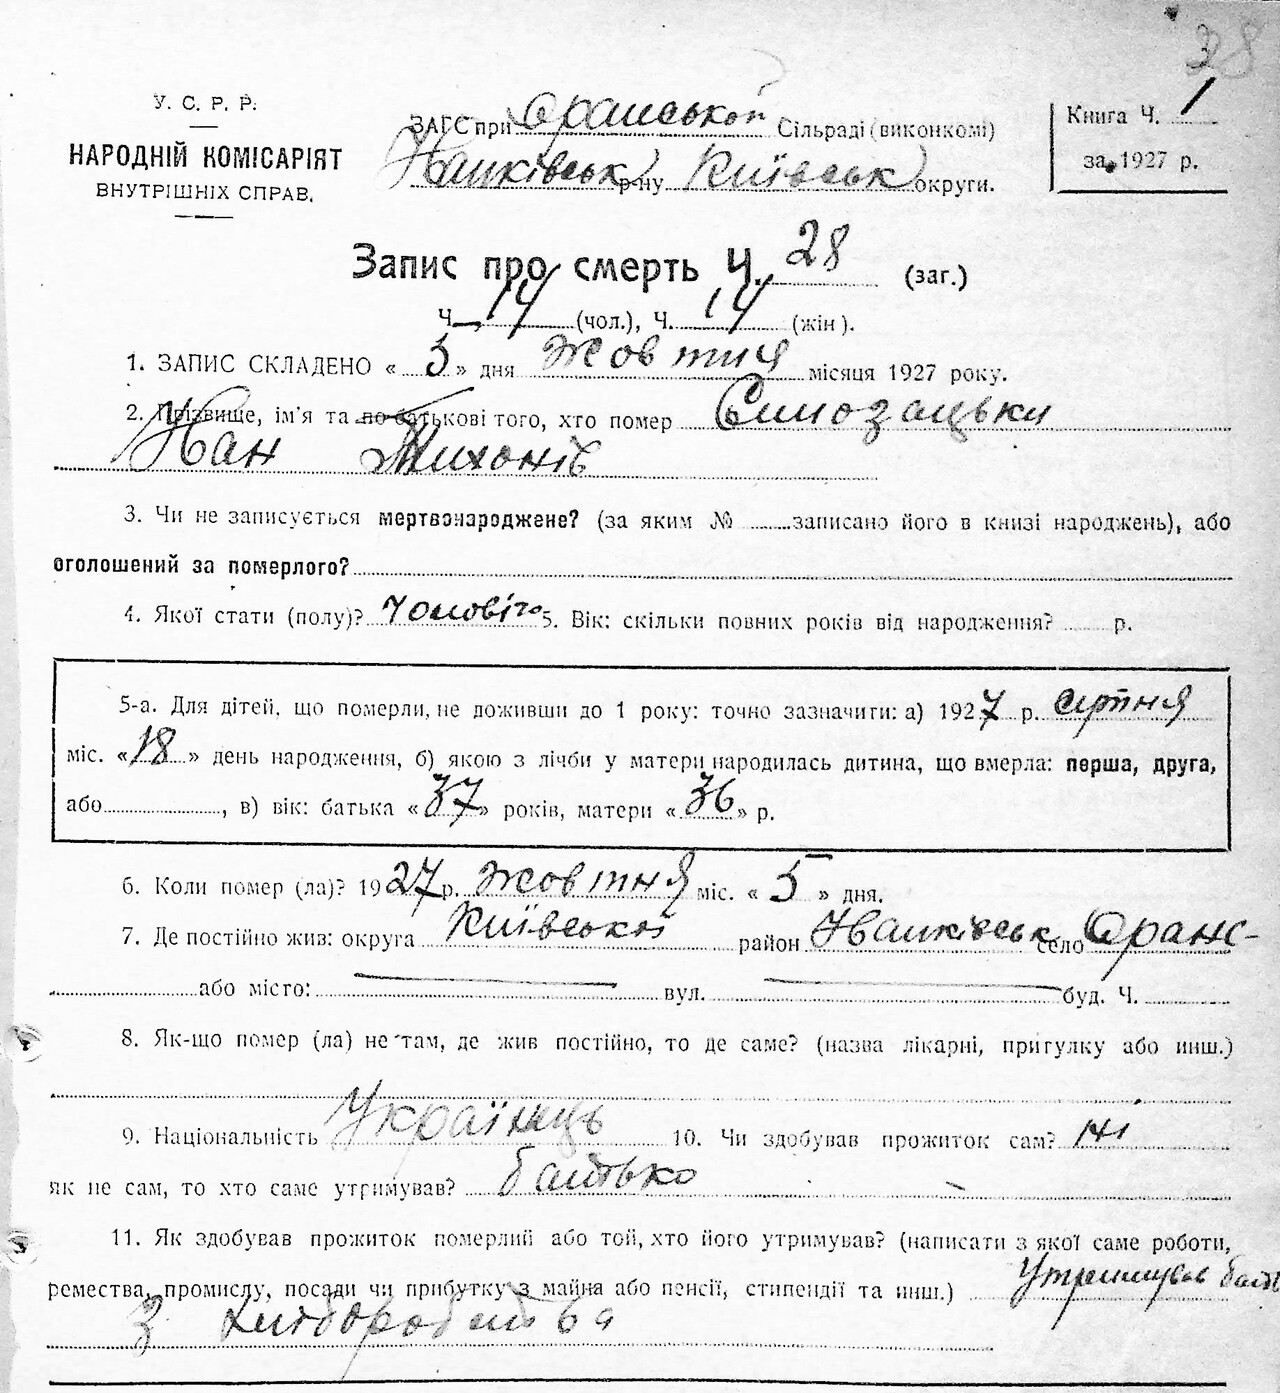 28
У. С. Р. Р.
НАРОДНІЙ КОМІСАРІЯТ
ВНУТРІШНІХ СПРАВ.
ЗАГС при Оранської Сільраді (виконкомі)
р-ну Київськ округи.
Книга Ч. 1
за 1927 р.
Запис про смерть Ч. 28 (заг.)
Ч. 14 (чол.), Ч. 14 (жін).
1. ЗАПИС СКЛАДЕНО « 5 » дня жовтня місяця 1927 року.
2. Прізвище, ім'я та по батькові того, хто помер
3. Чи не записується мертвонароджене? (за яким № записано його в книзі народжень), або
оголошений за померлого?
4. Якої стати (полу)? чоловіч 5. Вік: скільки повних років від народження? р.
5-а. Для дітей, що померли, не доживши до 1 року: точно зазначити: а) 1927 р. серпня
міс. « 18 » день народження, б) якою з лічби у матери народилась дитина, що вмерла: перша, друга,
або , в) вік: батька « 37 » років, матери « 36 » р.
6. Коли помер (ла)? 1927 р. жовтня міс. « 5 » дня.
7. Де постійно жив: округа Київської район Іванківськ село Оранс-
або місто: вул. буд. Ч.
8. Як-що помер (ла) не там, де жив постійно, то де саме? (назва лікарні, пригулку або инш.)
9. Національність Українець 10. Чи здобував прожиток сам? ні
як не сам, то хто саме утримував? батько
11. Як здобував прожиток померлий або той, хто його утримував? (написати з якої саме роботи,
ремества, промислу, посади чи прибутку з майна або пенсії, стипендії та инш.) Утримував бать
З хліборобства